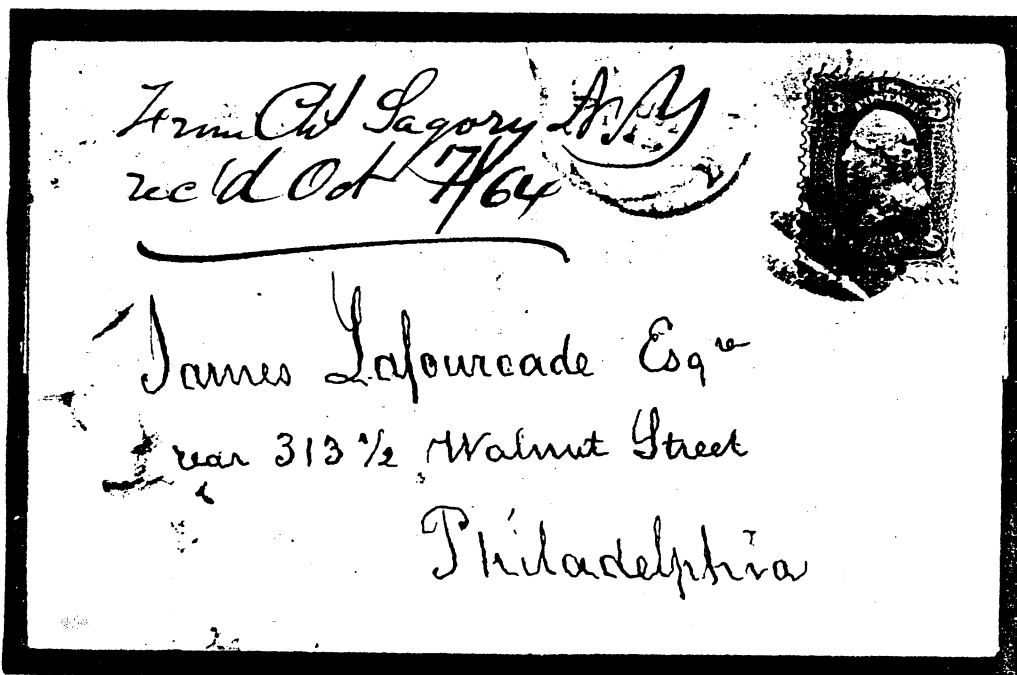 From Chs Sagory N. Y
rec'd Oct 7/64
James Lafourcade Esqre
rear 313 1/2 Walnut Street
Philadelphia